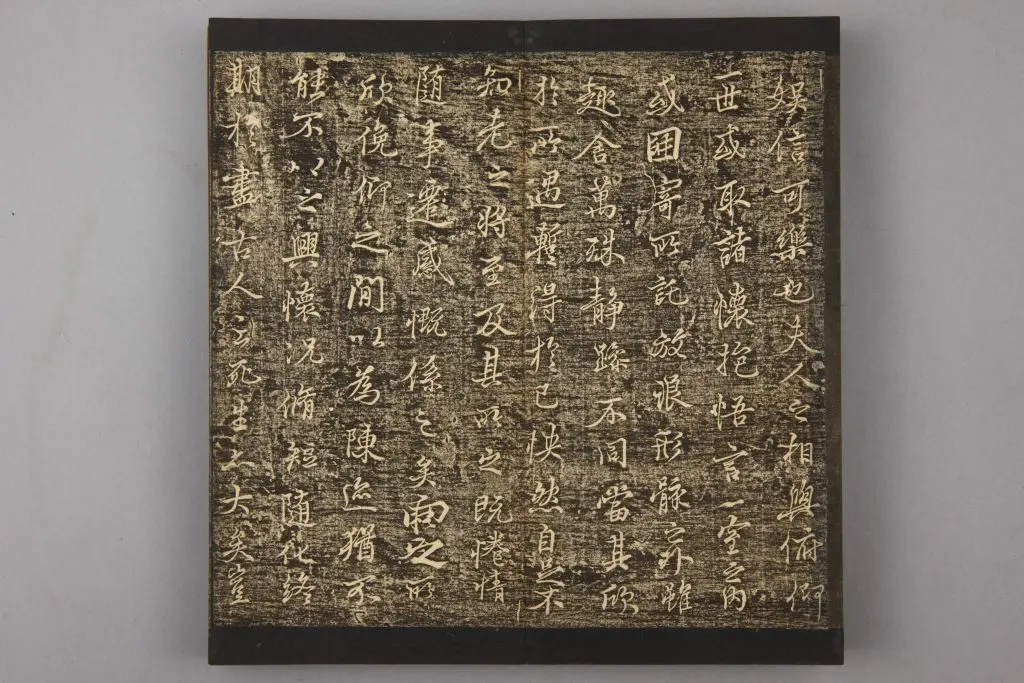 娱信可樂也夫人之相與俯仰
一世或取諸懷抱悟言一室之內
或因寄所託放浪形骸之外雖
趣舍萬殊静躁不同當其欣
於所遇蹔得於己怏然自足不
知老之將至及其所之既惓情
随事遷感慨係之矣向之所
欣俛仰之閒以為陳迹猶不
能不以之興懷况脩短随化終
期於盡古人云死生亦大矣豈